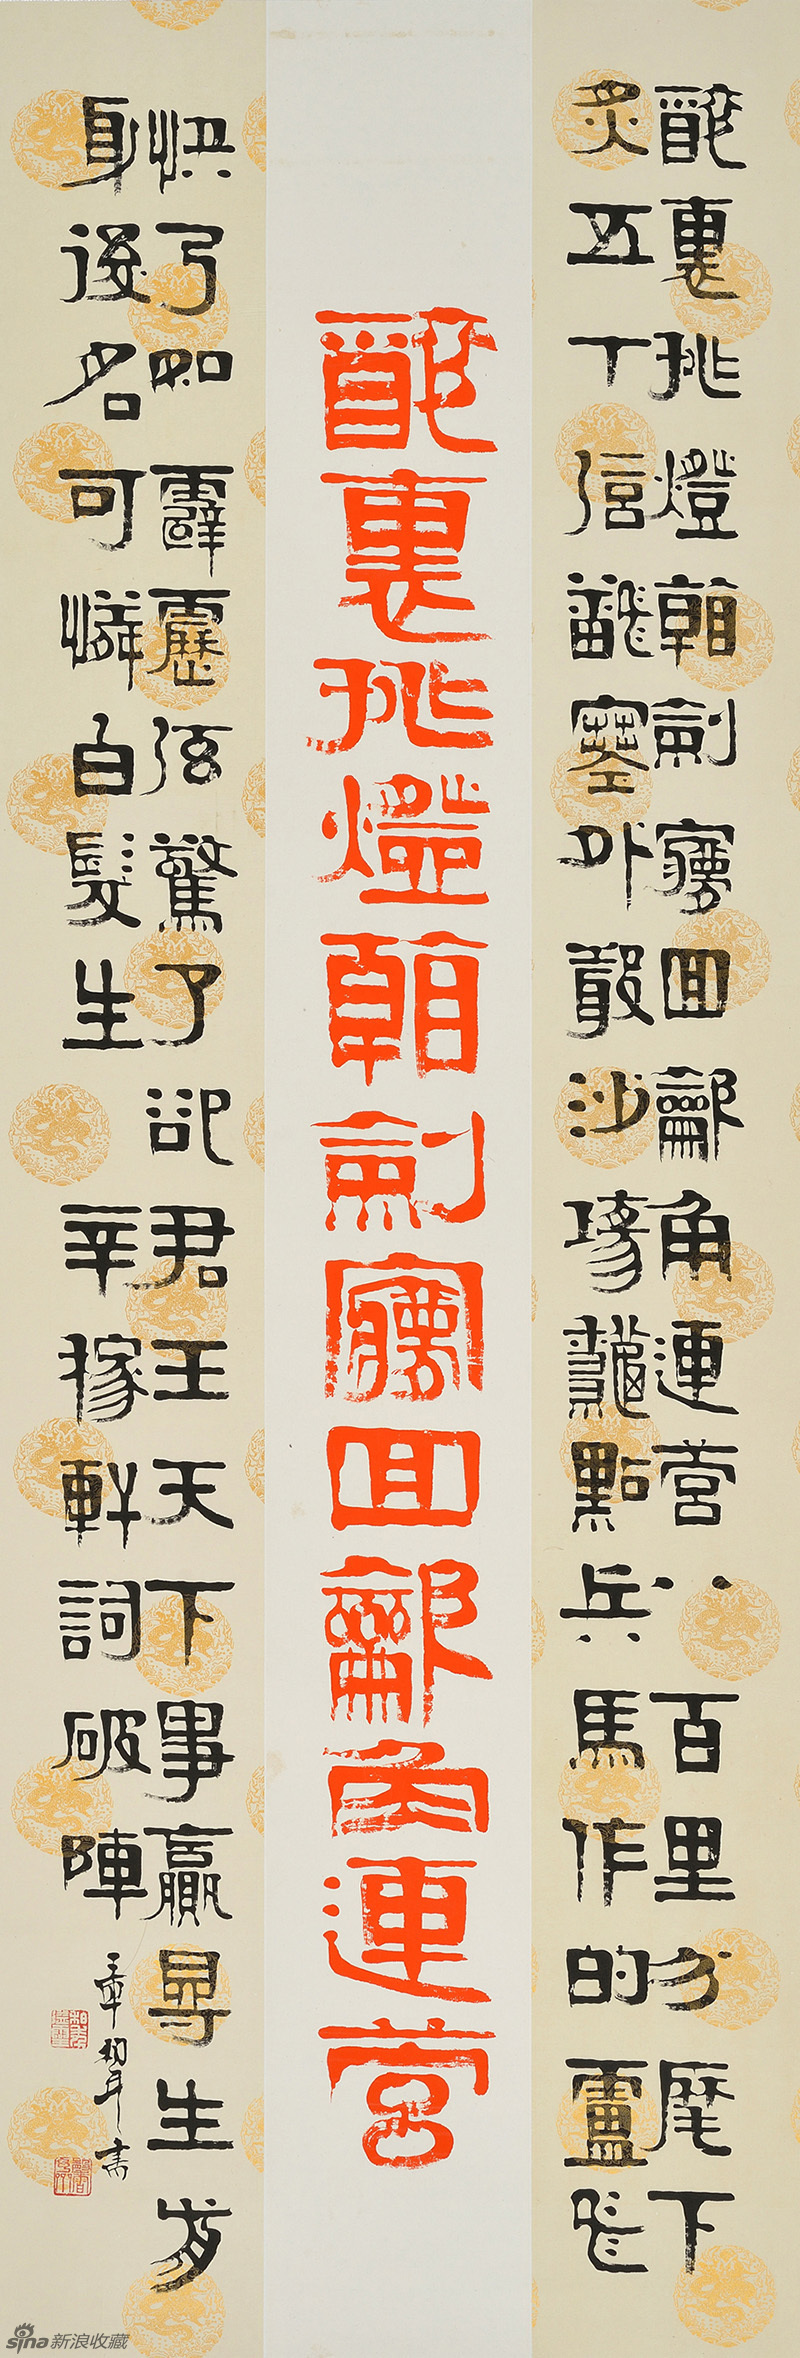 醉裏挑燈看劍夢回龡角連營八百里分麾下
炙五十弦飜塞外聲沙場龝點兵馬作的盧飛
醉裏挑燈看劍夢回龡角連營
快弓如霹靂弦驚了卻君王天下事贏得生前
身後名可憐白髮生 辛稼軒詞破陣
章初升書
sina新浪收藏